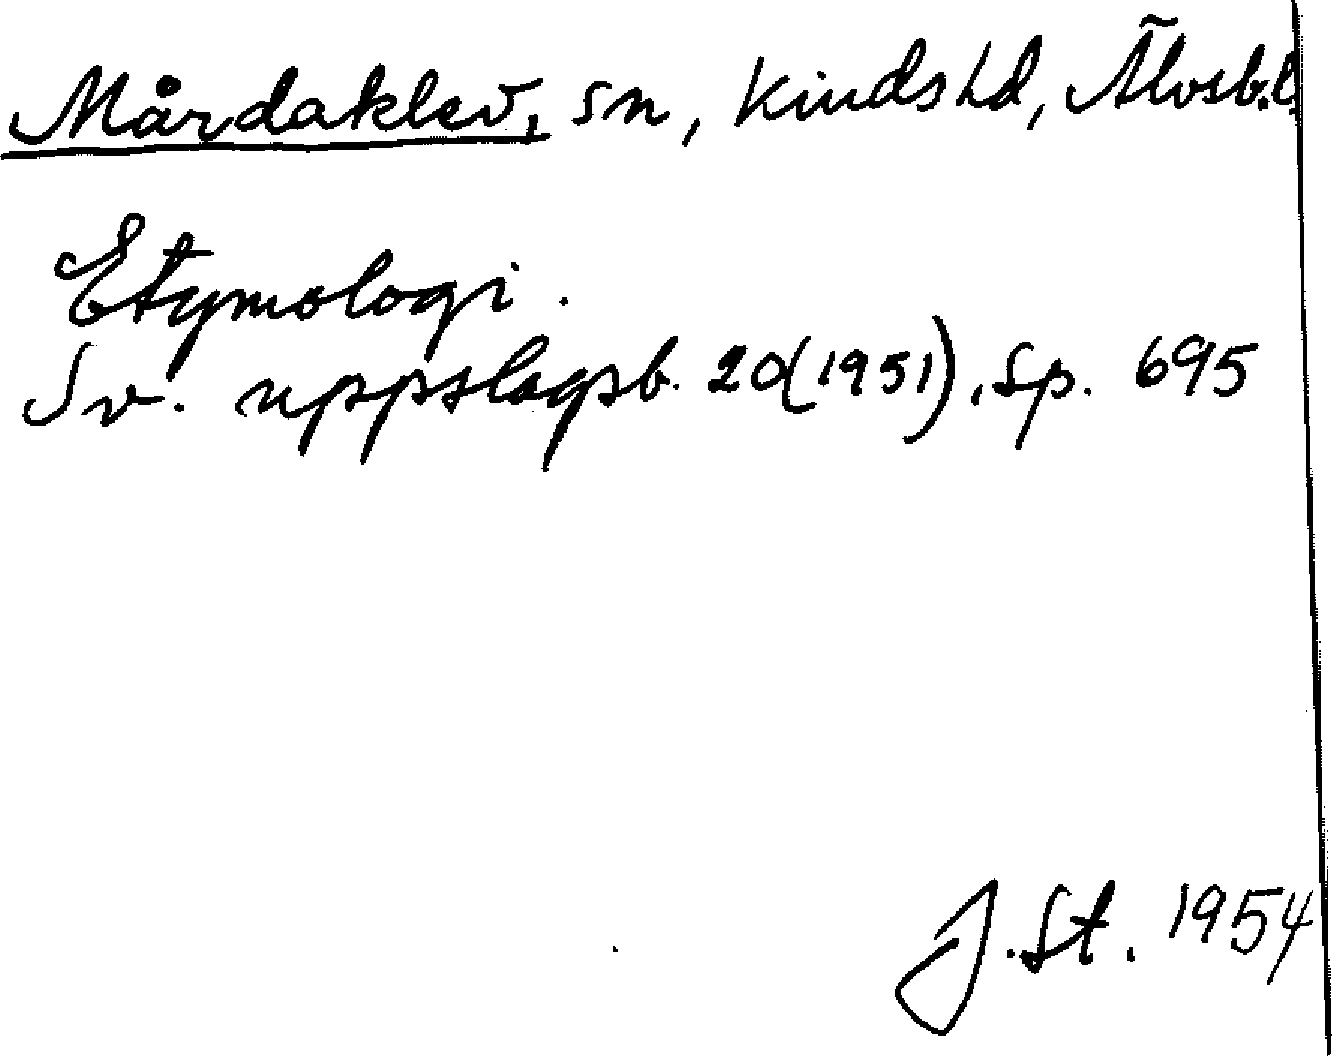 Mårdaklev, sn, Kinds hd, Älvsb.l.
Etymologi.
Sv. uppslagsb. 20(1951), sp. 695
J. St. 1954